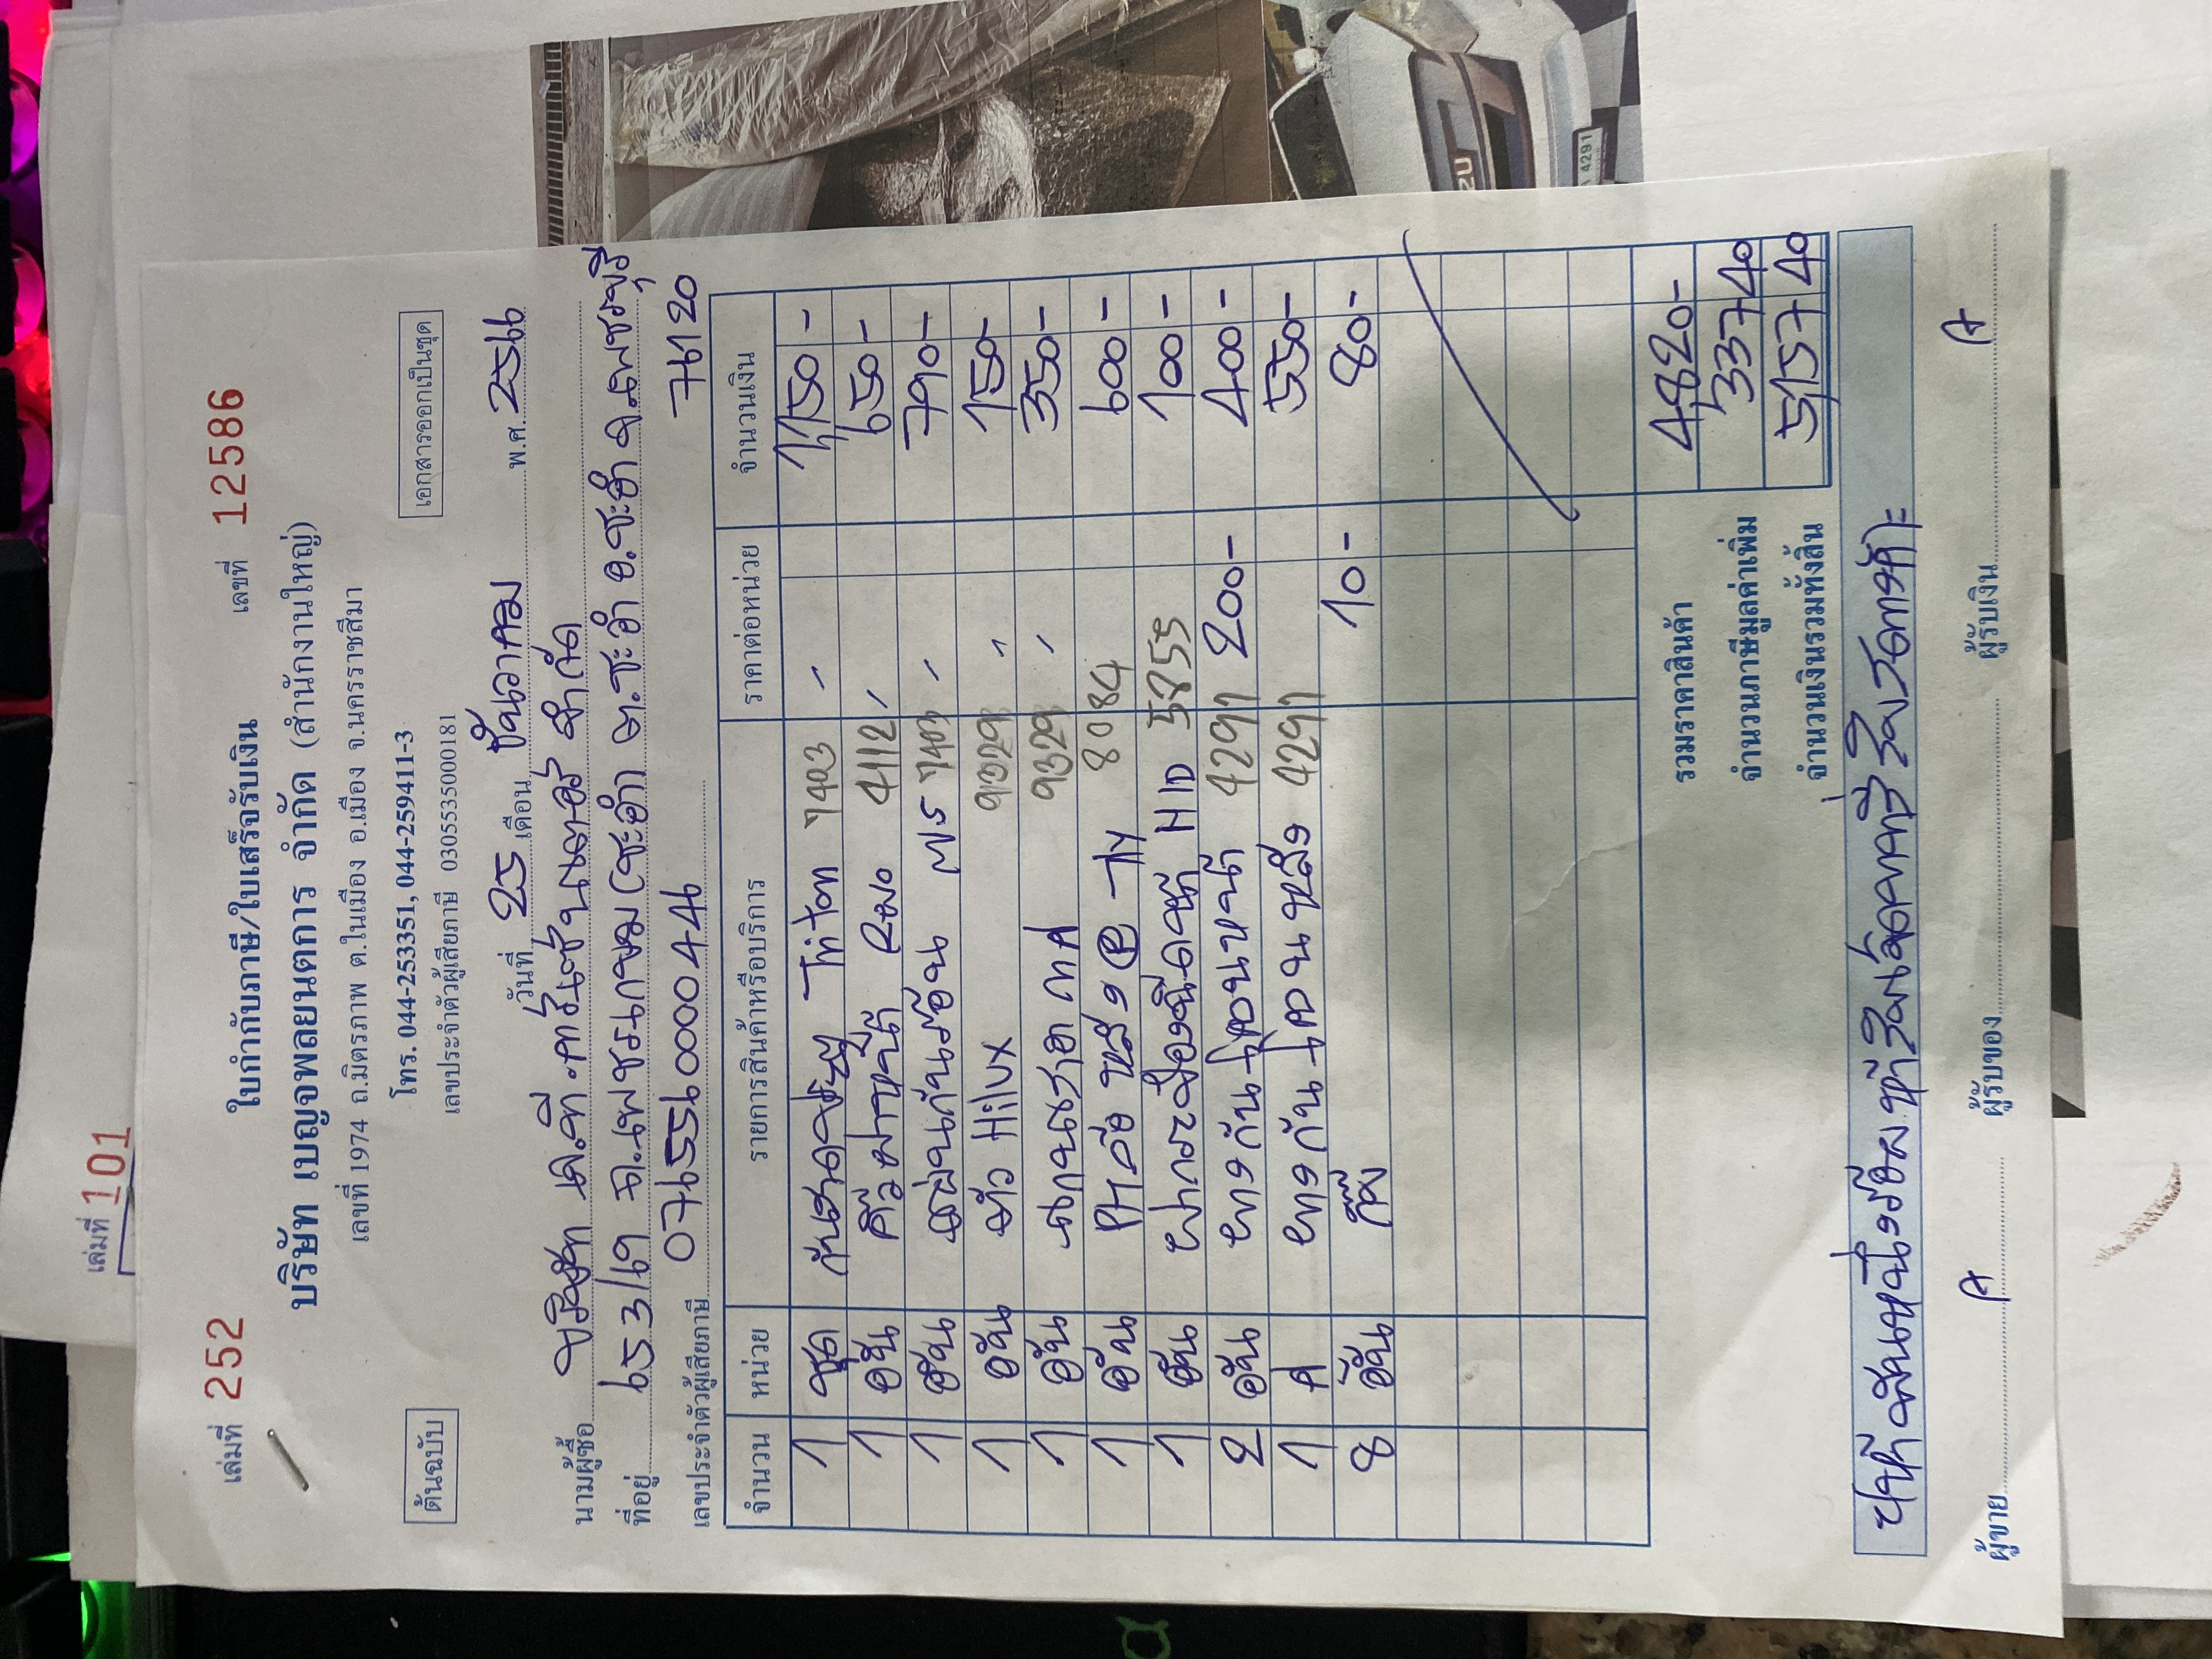 เล่มที่ 101
เล่มที่ 252 ใบกำกับภาษี/ใบเสร็จรับเงิน เลขที่ 12586
บริษัท เบญจพลยนตการ จำกัด (สำนักงานใหญ่)
เลขที่ 1974 ถ.มิตรภาพ ต.ในเมือง อ.เมือง จ.นครราชสีมา
ต้นฉบับ โทร. 044-253351, 044-259411-3 เอกสารออกเป็นชุด
เลขประจำตัวผู้เสียภาษี 0305535000181
วันที่ 25 เดือน ธันวาคม พ.ศ. 2566
นามผู้ซื้อ บริษัท เค.ที. จำกัด
ที่อยู่ 653/69 ถ.เพชรเกษม (ชะอำ) ต.ชะอำ อ.ชะอำ จ.เพชรบุรี
เลขประจำตัวผู้เสียภาษี 0765560000446 76120
จำนวน หน่วย รายการสินค้าหรือบริการ ราคาต่อหน่วย จำนวนเงิน
1 ชุด Triton 7403 1,150 -
1 อัน 4112 650 -
1 อัน 7403 790 -
1 อัน Hilux 9329 150 -
1 อัน 9329 350 -
1 อัน 8084 600 -
1 อัน HID 5855 100 -
2 อัน ยางกันโคลนหน้า 4291 200 - 400 -
1 ยางกันโคลนหลัง 4291 550 -
8 อัน กิ๊ป 10 - 80 -
รวมราคาสินค้า 4,820 -
จำนวนภาษีมูลค่าเพิ่ม 337 40
จำนวนเงินรวมทั้งสิ้น 5,157 40
(ห้าพันหนึ่งร้อยห้าสิบเจ็ดบาทสี่สิบสตางค์)
ผู้ขาย ผู้รับของ ผู้รับเงิน
4291